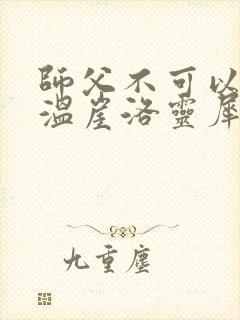 師父不可以
溫崖洛靈犀
九重塵